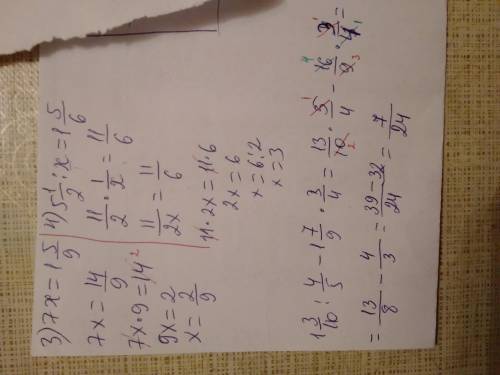 3) 7x = 1 5/9
7x = 14/9
7x·9 = 14 2
9x = 2
x = 2/9
4) 5 1/2 : x = 1 5/6
11/2 · 1/x = 11/6
11/2x = 11/6
11·2x = 11·6
2x = 6
x = 6:2
x = 3
1 3/10 : 4/5 - 1 7/9 · 3/4 = 13/10 · 5/4 - 16/9 · 3/4 =
= 13/8 - 4/3 = 39-32/24 = 7/24